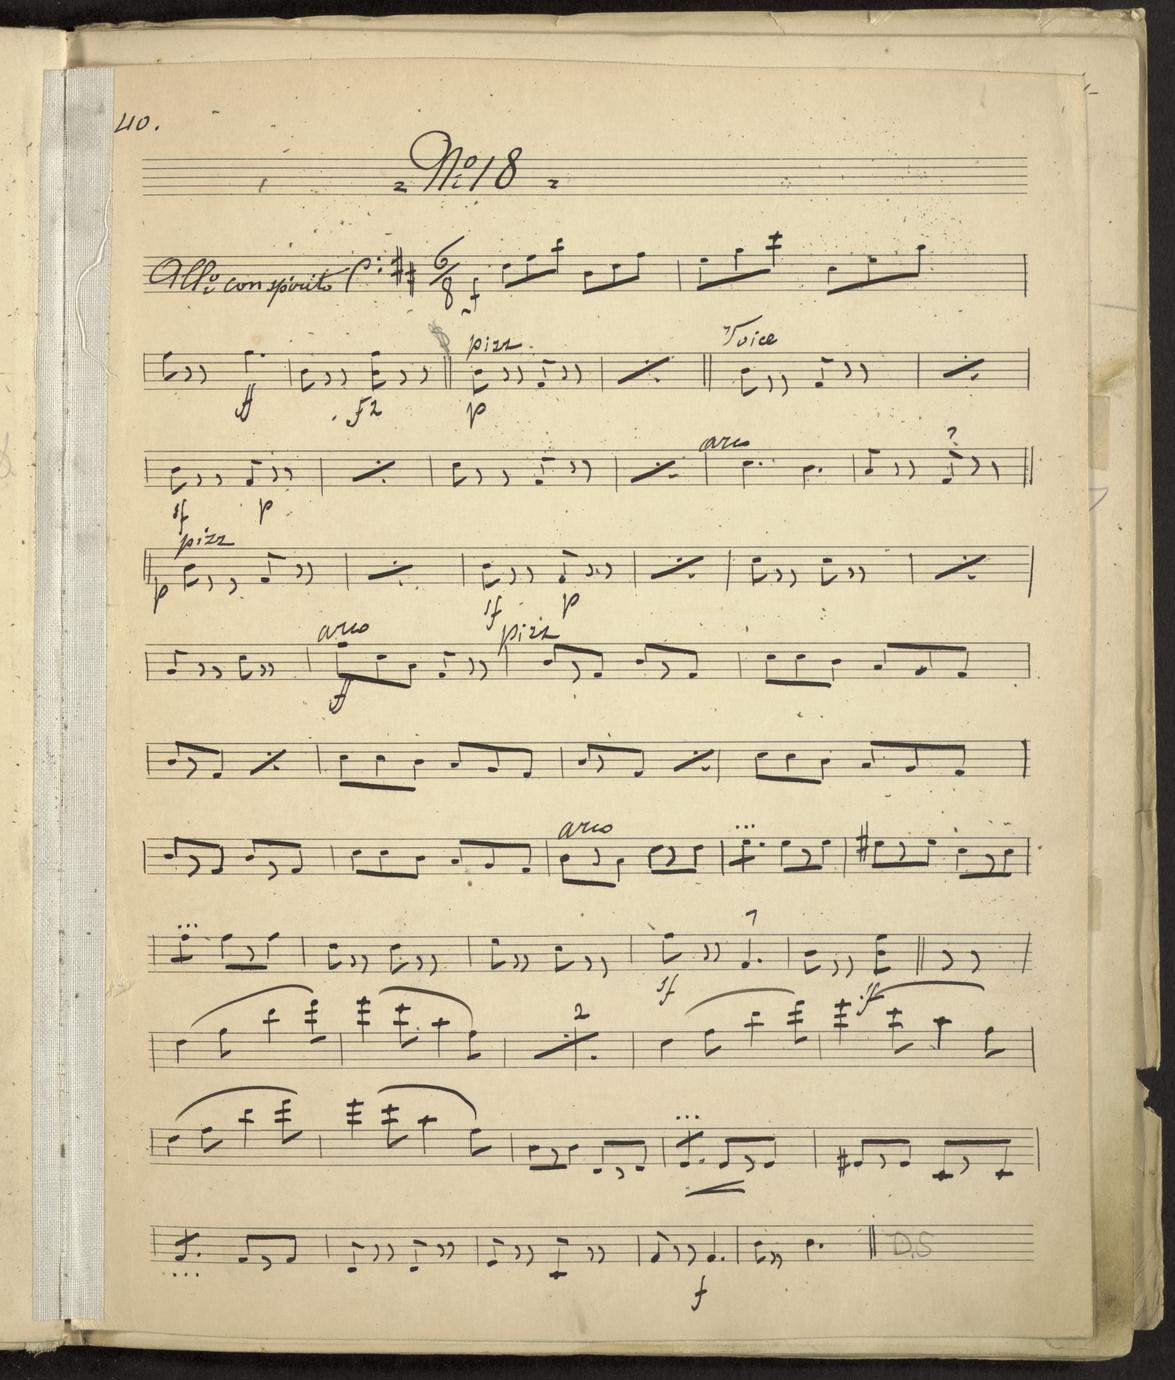 40.
No 18
Allo con spirito 6/8 f
pizz. Voice
ff fz p
arco
sf p
pizz
p sf p
arco pizz
f
arco
sf sf
2
D.S
f